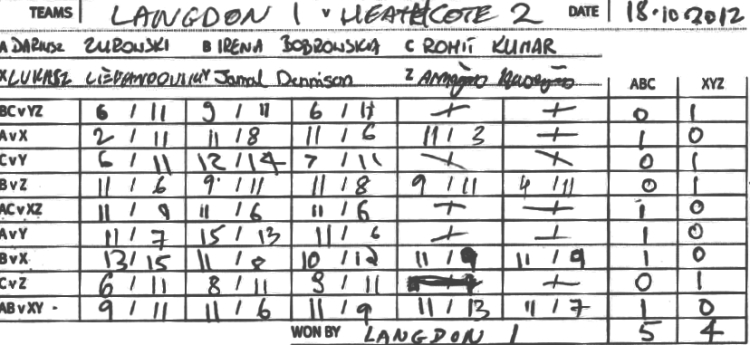 TEAMS LANGDON 1 v HEATHCOTE 2 DATE 18.10.2012
A DARIUSZ ZUROWSKI B IRENA BOBROWSKA C ROHIT KUMAR
X LUKASZ Y Jamal Dennison Z
ABC XYZ
BCvYZ 6 / 11 9 / 11 6 / 11 0 1
AvX 2 / 11 11 / 8 11 / 6 11 / 3 1 0
CvY 6 / 11 12 / 14 7 / 11 0 1
BvZ 11 / 6 9 / 11 11 / 8 9 / 11 4 / 11 0 1
ACvXZ 11 / 9 11 / 6 11 / 6 1 0
AvY 11 / 7 15 / 13 11 / 6 1 0
BvX 13 / 15 11 / 8 10 / 12 11 / 9 11 / 9 1 0
CvZ 6 / 11 8 / 11 9 / 11 0 1
ABvXY 9 / 11 11 / 6 11 / 9 11 / 13 11 / 7 1 0
WON BY LANGDON 1 5 4